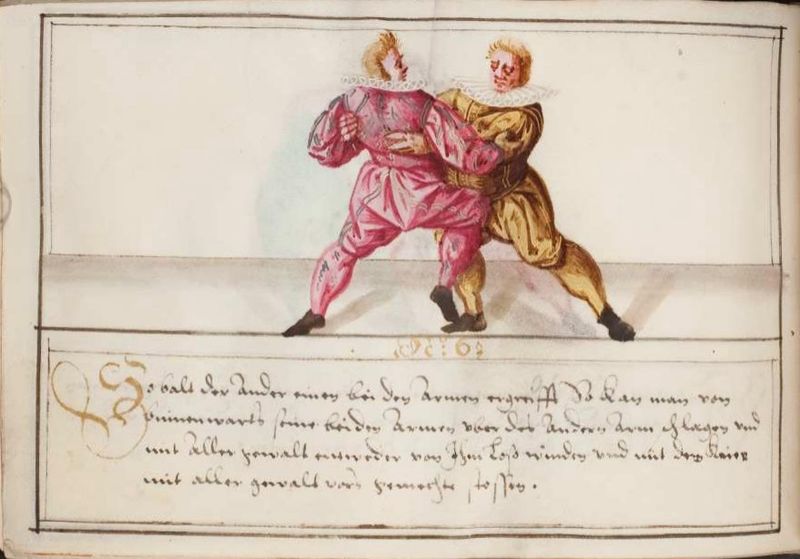 So balt der Ander einen bei den Armen ergreifft So kan man von
binnenwarts seine beiden Armen vber des Andern Arm schlagen vnd
mit Aller gewalt entweder von Ihm Loß winden vnd mit dem knier
mit aller gewalt vors gemechte stossen.